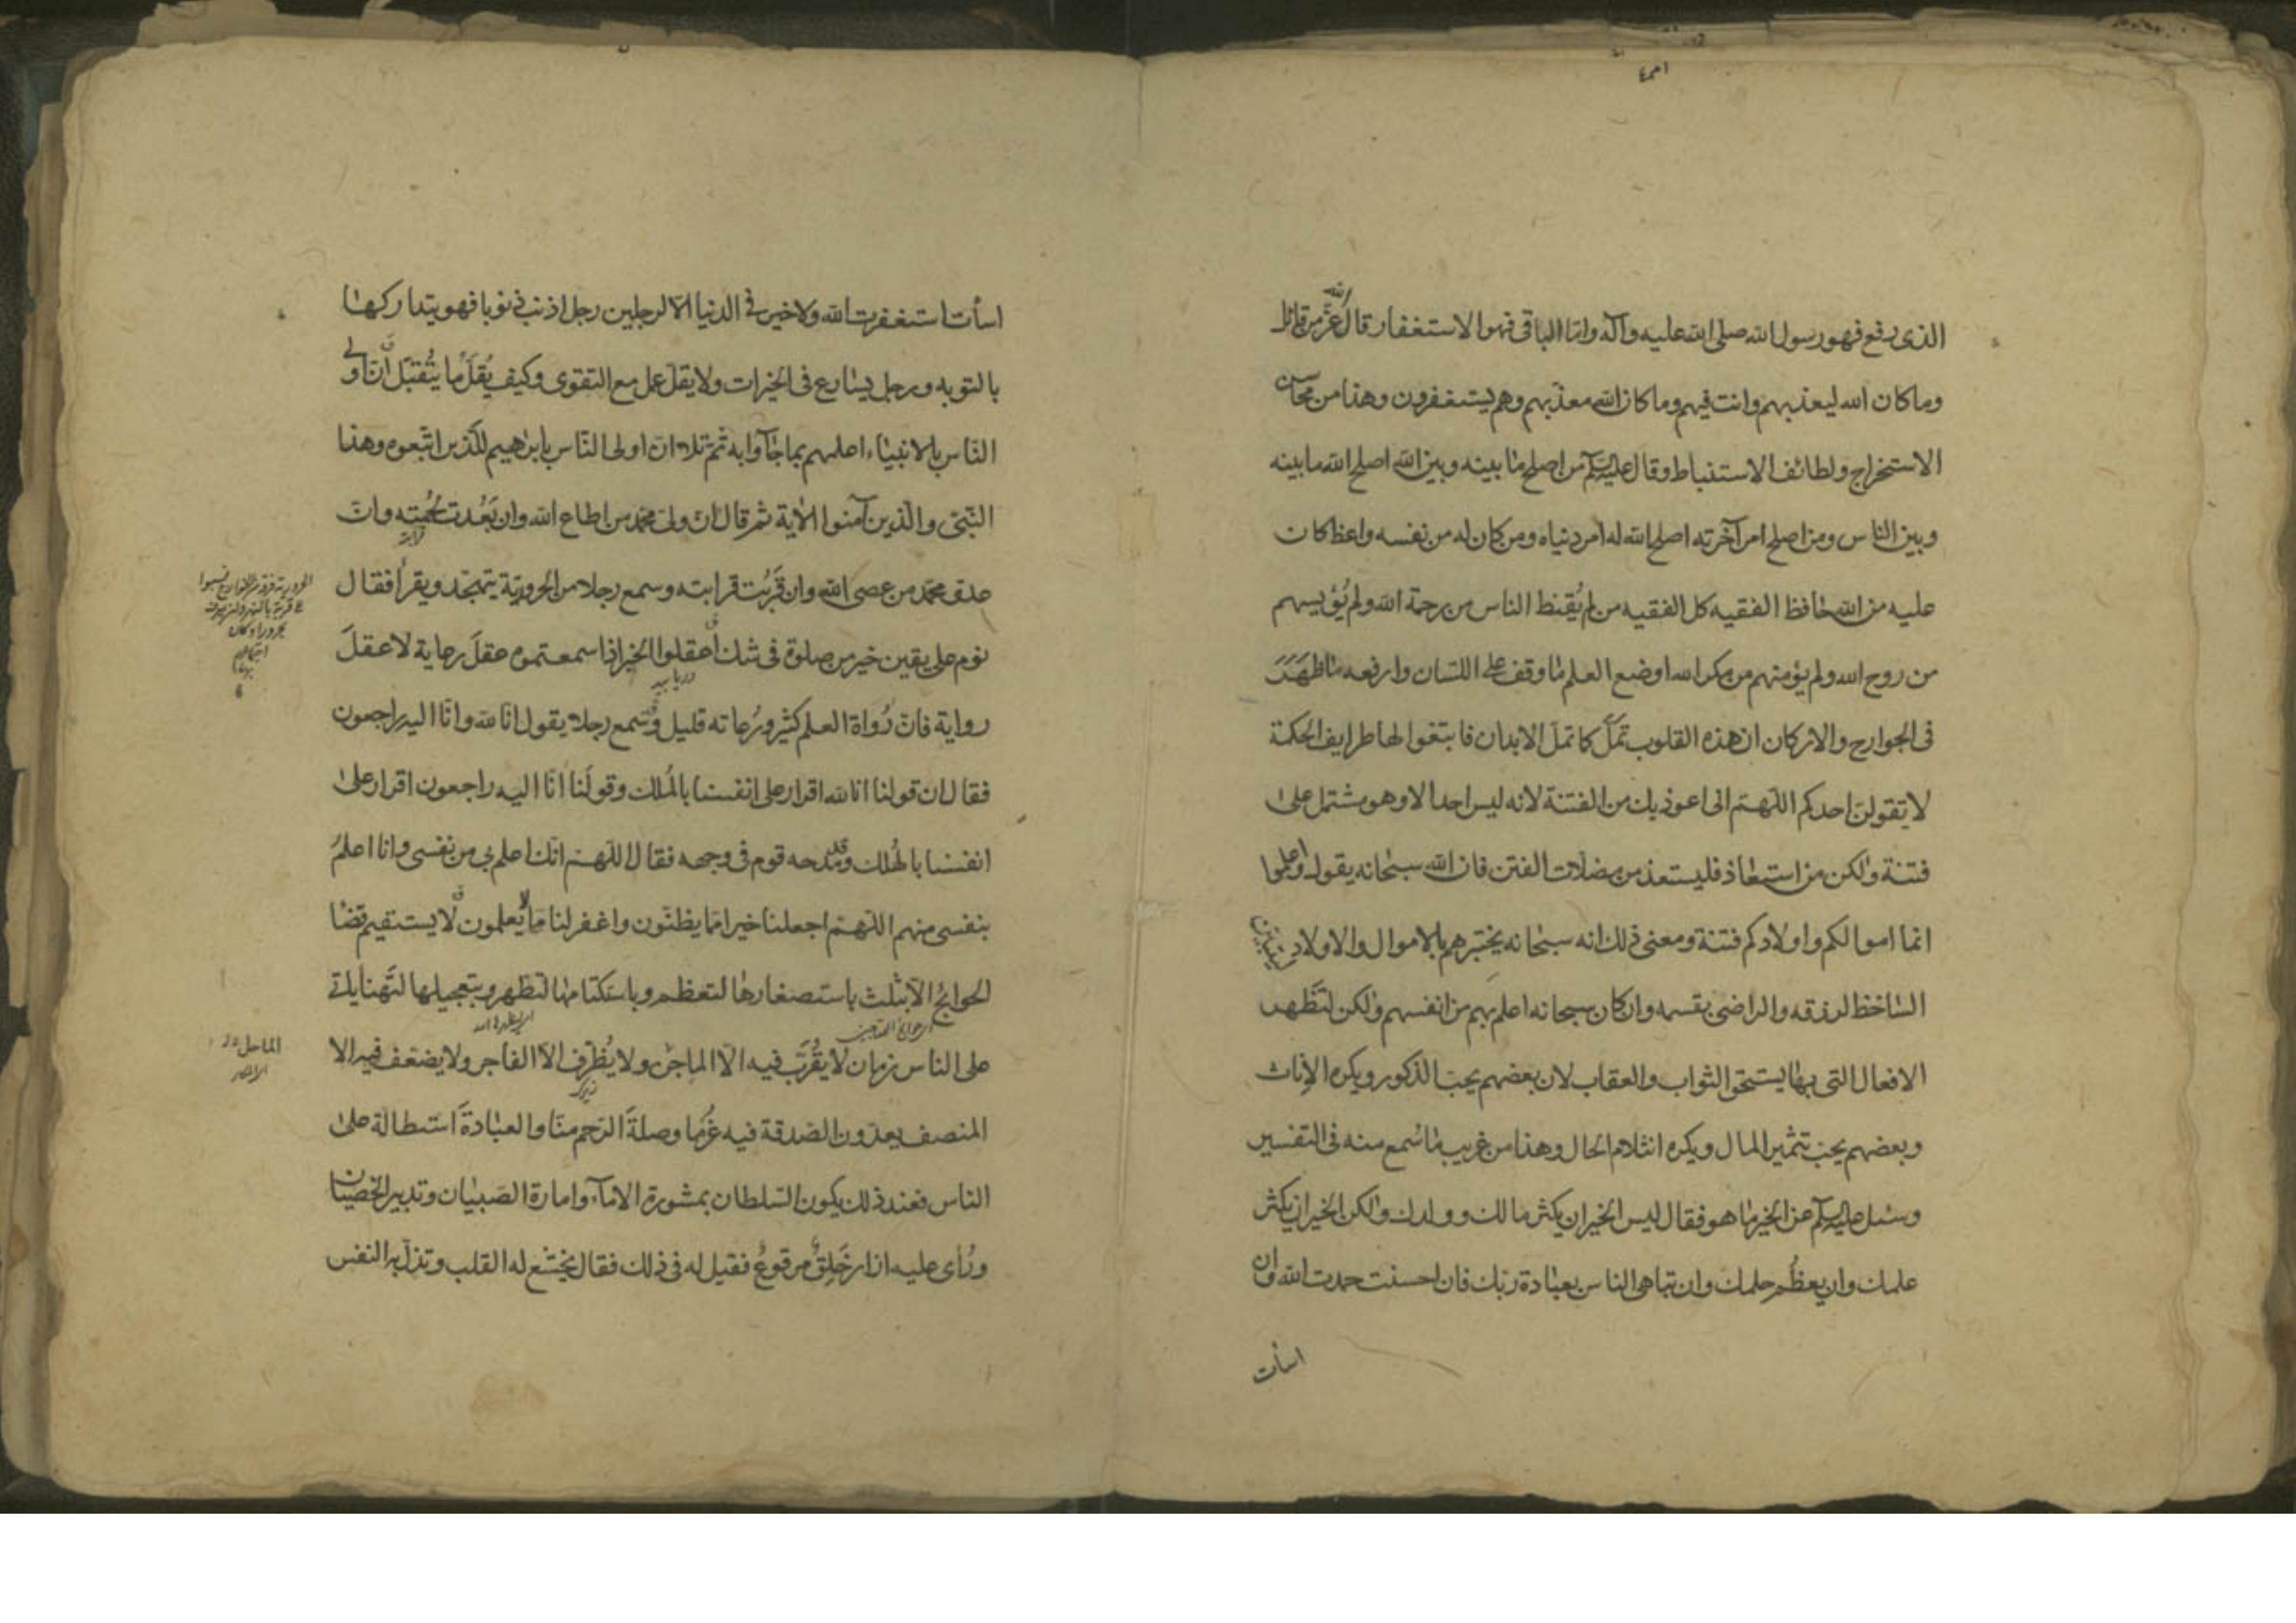 الذى رفع فهو رسول الله صلى الله عليه وآله واما الباقى فهو الاستغفار قال الله عزّ من قائل
وما كان الله ليعذبهم وانت فيهم وما كان الله معذبهم وهم يستغفرون وهذا من محاسن
الاستخراج ولطائف الاستنباط وقال عليه السلم من اصلح ما بينه وبين الله اصلح الله ما بينه
وبين الناس ومن اصلح امر آخرته اصلح الله له امر دنياه ومن كان له من نفسه واعظ كان
عليه من الله حافظ الفقيه كل الفقيه من لم يُقنط الناس من رحمة الله ولم يُؤيسهم
من روح الله ولم يؤمنهم من مكر الله اوضع العلم ما وقف على اللسان وارفعه ما ظهَرَ
فى الجوارح والاركان ان هذه القلوب تملّ كما تملّ الابدان فابتغوا لها طرايف الحكمة
لا يقولنّ احدكم اللهمّ انى اعوذ بك من الفتنة لانه ليس احد الا وهو مشتمل على
فتنة ولكن من استعاذ فليستعذ من مضلات الفتن فان الله سبحانه يقول واعلموا
انما اموالكم واولادكم فتنة ومعنى ذلك انه سبحانه يختبرهم بالاموال والاولاد ليتبين
الساخط لرزقه والراضى بقسمه وان كان سبحانه اعلم بهم من انفسهم ولكن لتظهر
الافعال التى بها يستحق الثواب والعقاب لان بعضهم يحبّ الذكور ويكره الاناث
وبعضهم يحبّ تثمير المال ويكره انثلام الحال وهذا من غريب ما سُمع منه فى التفسير
وسئل عليه السلم عن الخير ما هو فقال ليس الخير ان يكثر مالك وولدك ولكن الخير ان يكثر
علمك وان يعظُم حلمك وان تباهى الناس بعبادة ربّك فان احسنت حمدت الله وان
اسأت
اسأت استغفرت الله ولا خير فى الدنيا الّا لرجلين رجل اذنب ذنوبا فهو يتداركها
بالتوبه ورجل يسارع فى الخيرات ولا يقلّ عمل مع التقوى وكيف يُقلّ ما يُتقبّل انّ اولى
النّاس بالانبياء اعلمهم بما جاؤا به ثمّ تلا ان اولى النّاس بابرهيم للّذين اتّبعوه وهذا
النّبىّ والّذين آمنوا الآية ثم قال انّ ولىّ محمّد من اطاع الله وان بَعُدت لُحمته وانّ
عدوّ محمّد من عصى الله وان قَرُبَت قرابته وسمع رجلا من الحروريّة يتهجّد ويقرأ فقال
نوم على يقين خير من صلوة فى شك اعقلوا الخير اذا سمعتموه عقلَ رعاية لا عقلَ
رواية فانّ رُواة العلم كثير ورُعاته قليل وسمع رجلا يقول انا لله وانّا اليه راجعون
فقال ان قولنا انا لله اقرار على انفسنا بالمُلك وقولَنا انّا اليه راجعون اقرار على
انفسنا بالهُلك وقد مدحه قوم فى وجهه فقال اللهمّ انك اعلم بى من نفسى وانا اعلمُ
بنفسى منهم اللهمّ اجعلنا خيرا مما يظنّون واغفر لنا ما لا يعلمون لا يستقيم قضا
الحوائج الا بثلث باستصغارها لتعظم وباستكتامها لتظهر وبتعجيلها لتَهنأ ياتى
على الناس زمان لا يقُرَّب فيه الّا الماحل ولا يُظرّف الّا الفاجر ولا يضعّف فيه الا
المنصف يعدّون الصّدقة فيه غُرمًا وصلةَ الرّحم منّا والعبادةَ استطالة على
الناس فعند ذلك يكون السّلطان بمشورة الاماء وامارة الصّبيان وتدبير الخصيان
ورُأى عليه ازار خَلِقٌ مرقوعٌ فقيل له فى ذلك فقال يخشع له القلب وتذلّ به النفس